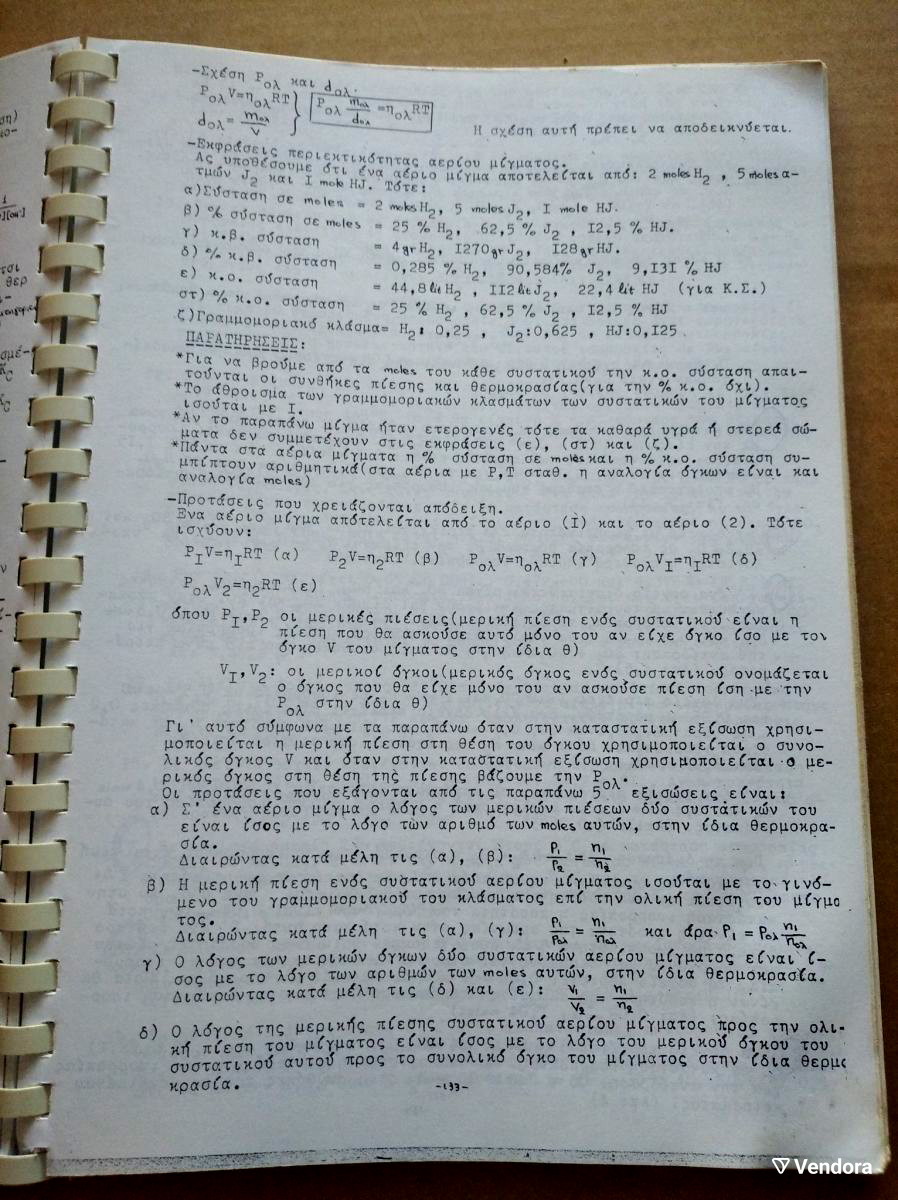 -Σχέση Pολ και dολ.
PολV=ηολRT
dολ= mολ/V
Pολ mολ/dολ =ηολRT
Η σχέση αυτή πρέπει να αποδεικνύεται.
-Εκφράσεις περιεκτικότητας αερίου μίγματος.
Ας υποθέσουμε ότι ένα αέριο μίγμα αποτελείται από: 2 moles H2 , 5 moles α-
τμών J2 και I mole HJ. Τότε:
α)Σύσταση σε moles = 2 moles H2, 5 moles J2, I mole HJ.
β) % σύσταση σε moles = 25 % H2, 62,5 % J2 , I2,5 % HJ.
γ) κ.β. σύσταση = 4gr H2, I270gr J2, I28gr HJ.
δ) % κ.β. σύσταση = 0,285 % H2, 90,584% J2, 9,I3I % HJ
ε) κ.ο. σύσταση = 44,8 lit H2 , II2 lit J2, 22,4 lit HJ (για Κ.Σ.)
στ) % κ.ο. σύσταση = 25 % H2 , 62,5 % J2 , I2,5 % HJ
ζ)Γραμμομοριακό κλάσμα= H2: 0,25 , J2:0,625 , HJ:0,I25
ΠΑΡΑΤΗΡΗΣΕΙΣ:
*Για να βρούμε από τα moles του κάθε συστατικού την κ.ο. σύσταση απαι-
τούνται οι συνθήκες πίεσης και θερμοκρασίας(για την % κ.ο. όχι).
*Το άθροισμα των γραμμομοριακών κλασμάτων των συστατικών του μίγματος
ισούται με I.
*Αν το παραπάνω μίγμα ήταν ετερογενές τότε τα καθαρά υγρά ή στερεά σώ-
ματα δεν συμμετέχουν στις εκφράσεις (ε), (στ) και (ζ).
*Πάντα στα αέρια μίγματα η % σύσταση σε moles και η % κ.ο. σύσταση συ-
μπίπτουν αριθμητικά(στα αέρια με P,T σταθ. η αναλογία όγκων είναι και
αναλογία moles)
-Προτάσεις που χρειάζονται απόδειξη.
Ενα αέριο μίγμα αποτελείται από το αέριο (I) και το αέριο (2). Τότε
ισχύουν:
PIV=ηIRT (α) P2V=η2RT (β) PολV=ηολRT (γ) PολVI=ηIRT (δ)
PολV2=η2RT (ε)
όπου PI,P2 οι μερικές πιέσεις(μερική πίεση ενός συστατικού είναι η
πίεση που θα ασκούσε αυτό μόνο του αν είχε όγκο ίσο με τον
όγκο V του μίγματος στην ίδια θ)
VI,V2: οι μερικοί όγκοι(μερικός όγκος ενός συστατικού ονομάζεται
ο όγκος που θα είχε μόνο του αν ασκούσε πίεση ίση με την
Pολ στην ίδια θ)
Γι' αυτό σύμφωνα με τα παραπάνω όταν στην καταστατική εξίσωση χρησι-
μοποιείται η μερική πίεση στη θέση του όγκου χρησιμοποιείται ο συνο-
λικός όγκος V και όταν στην καταστατική εξίσωση χρησιμοποιείται ο με-
ρικός όγκος στη θέση της πίεσης βάζουμε την Pολ.
Οι προτάσεις που εξάγονται από τις παραπάνω 5 εξισώσεις είναι:
α) Σ' ένα αέριο μίγμα ο λόγος των μερικών πιέσεων δύο συστατικών του
είναι ίσος με το λόγο των αριθμό των moles αυτών, στην ίδια θερμοκρα-
σία.
Διαιρώντας κατά μέλη τις (α), (β): P1/P2 = n1/n2
β) Η μερική πίεση ενός συστατικού αερίου μίγματος ισούται με το γινό-
μενο του γραμμομοριακού του κλάσματος επί την ολική πίεση του μίγμα
τος.
Διαιρώντας κατά μέλη τις (α), (γ): P1/Pολ = n1/nολ και άρα P1 = Pολ n1/nολ
γ) Ο λόγος των μερικών όγκων δύο συστατικών αερίου μίγματος είναι ί-
σος με το λόγο των αριθμών των moles αυτών, στην ίδια θερμοκρασία.
Διαιρώντας κατά μέλη τις (δ) και (ε): V1/V2 = n1/n2
δ) Ο λόγος της μερικής πίεσης συστατικού αερίου μίγματος προς την ολι-
κή πίεση του μίγματος είναι ίσος με το λόγο του μερικού όγκου του
συστατικού αυτού προς το συνολικό όγκο του μίγματος στην ίδια θερμο
κρασία.
-133-
Vendora